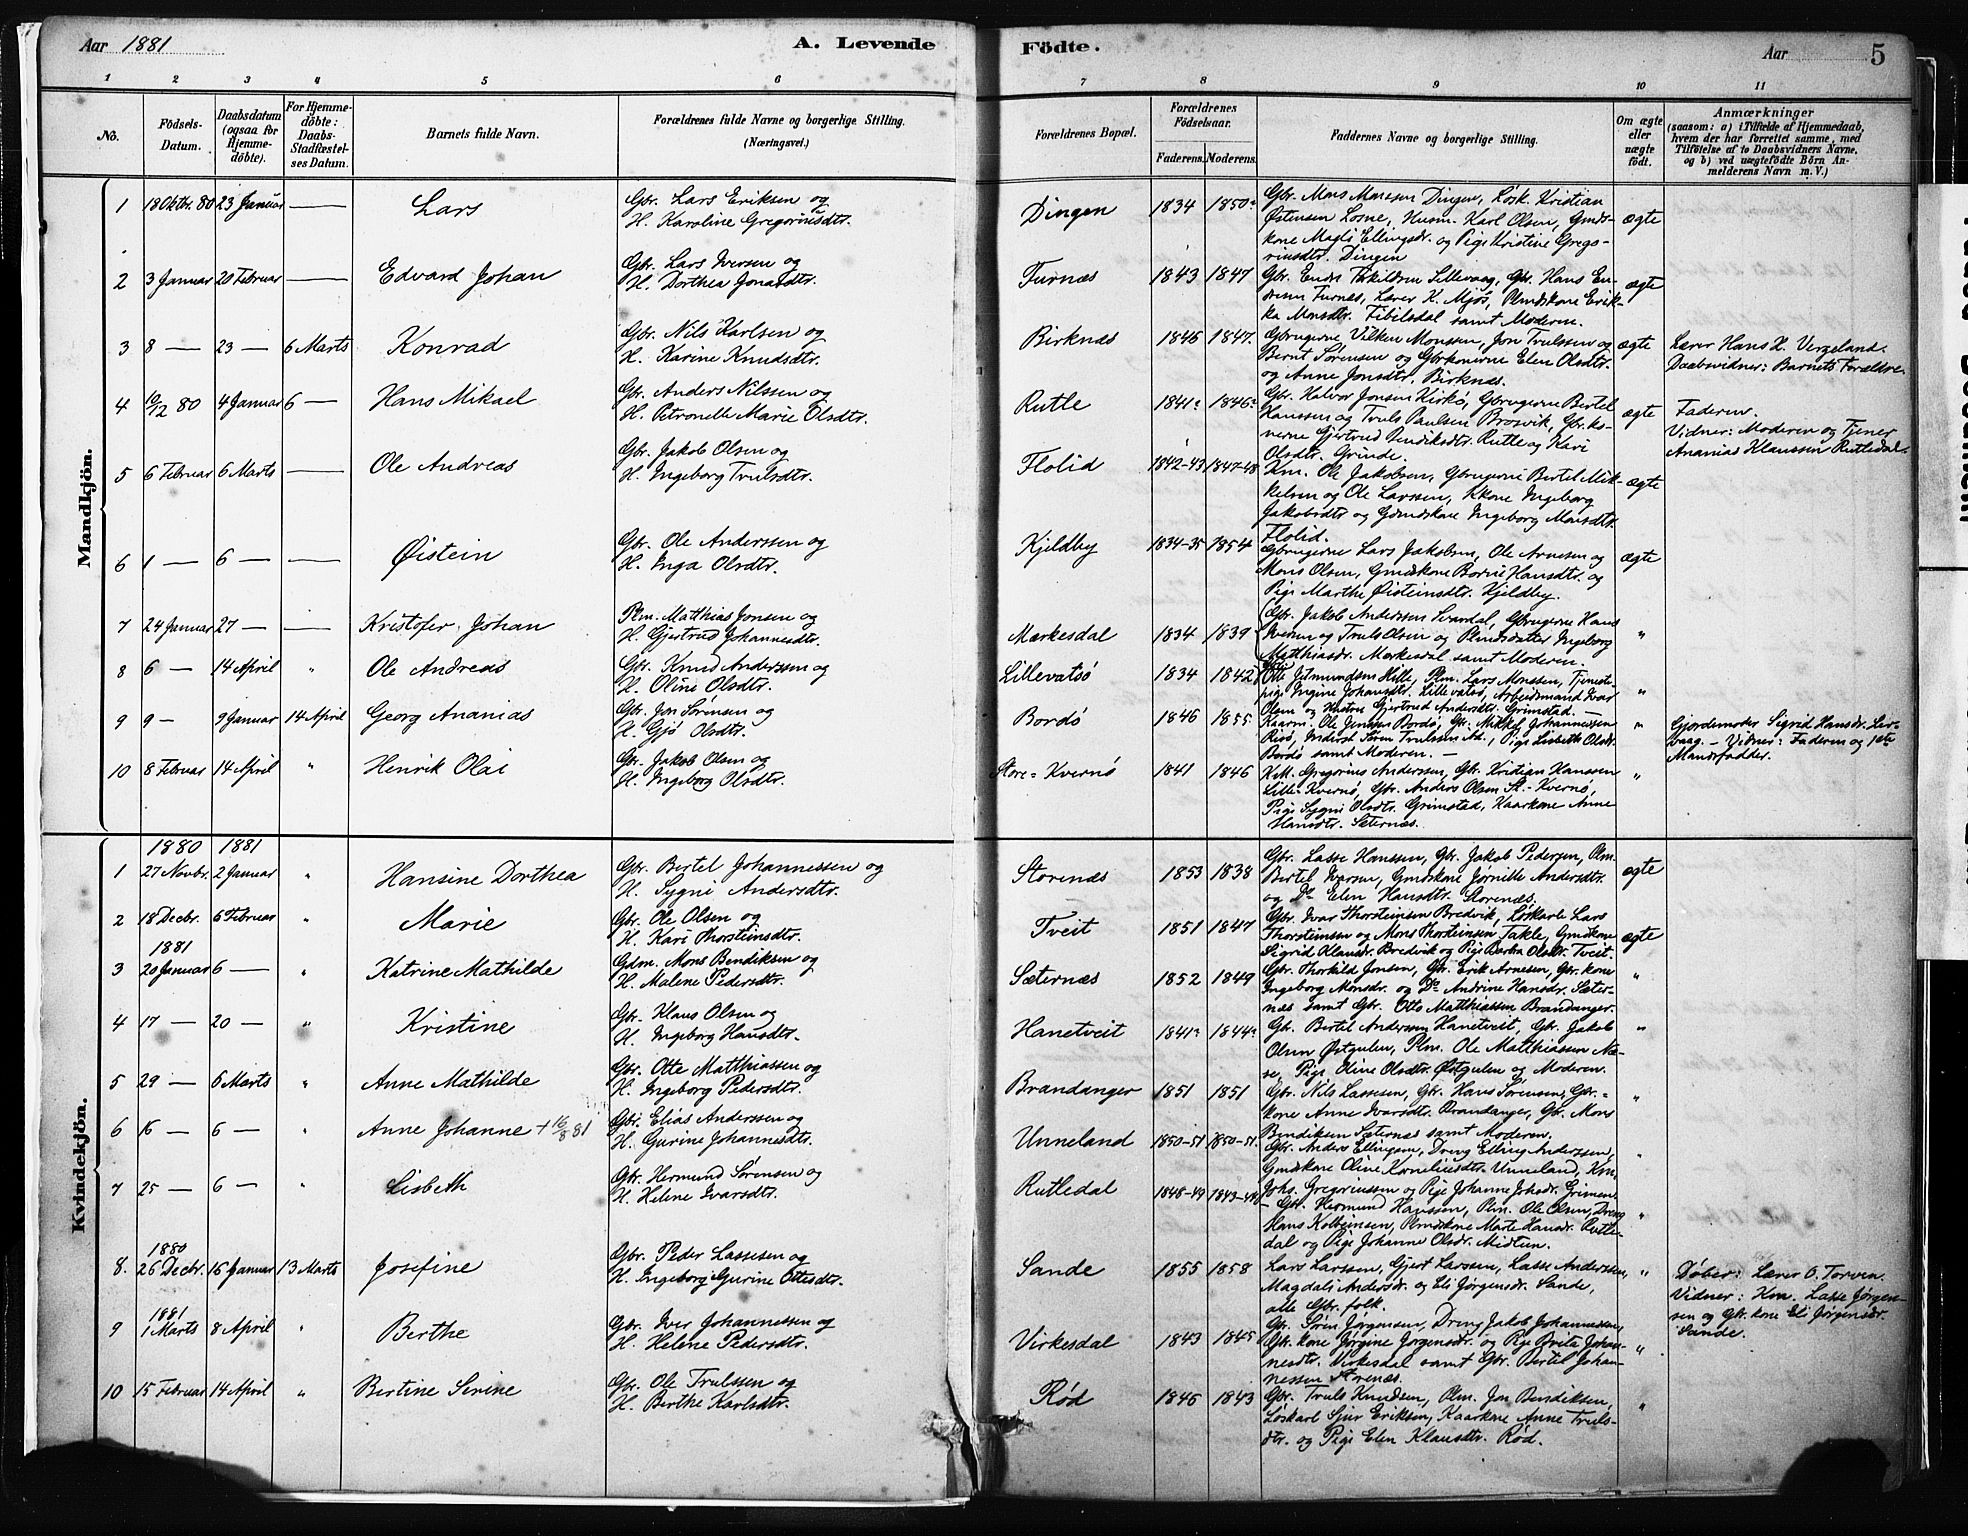 Aar 1881
A. Levende
Födte.
Aar
5
1 2 3 4 5 6 7 8 9 10 11
No.
Födsels-
Datum.
Daabsdatum
(ogsaa for
Hjemme-
döbte).
For Hjemme-
döbte:
Daabs-
Stadfæstel-
ses Datum.
Barnets fulde Navn.
Forældrenes fulde Navne og borgerlige Stilling.
(Næringsvei.)
Forældrenes Bopæl.
Forældrenes
Födselsaar.
Faderens.
Moderens.
Faddernes Navne og borgerlige Stilling.
Om ægte
eller
uægte
födt.
Anmærkninger
(saasom: a) i Tilfælde af Hjemmedaab,
hvem der har forrettet samme, med
Tilföielse af to Daabsvidners Navne,
og b) ved uægtefödte Börn An-
melderens Navn m. V.)
Mandkjön.
1 18 Oktbr. 80 23 Januar — Lars
Gbr. Lars Eriksen og
H. Karoline Gregoriusdtr.
Dingen 1834 1850
Gbr. Mons Monsen Dingen, Løsk. Kristian
Østensen Losne, Husm. Karl Olsen, Gmds-
kone Magli Ellingsdr. og Pige Kristine Grego-
riusdtr. Dingen
ægte
2 3 Januar 20 Februar — Edvard Johan
Gbr. Lars Iversen og
H. Dorthea Jonasdtr.
Furnæs 1843 1847
Gbr. Endr. Thkildsen Lillevaag, Gbr. Hans En-
dresen Furnæs, Lærer K. Mjøs, Plmdskone Erik-
ka Monsdtr. Fibilsdal samt Moderen.
ægte
3 8 — 23 — 6 Marts Konrad
Gbr. Nils Karlsen og
H. Karine Knudsdtr.
Birknæs 1846 1847.
Gbrugerne Vilken Monssen, Jon Trulssen og
Bernt Sørensen og Gbrkonerne Elen Olsdtr.
og Anne Jonsdtr. Birknæs.
ægte
Lærer Hans H. Vergeland.
Daabsvidner: Barnets Forældre.
4 10/12 80 4 Januar 6 — Hans Mikael
Gbr. Anders Nilssen og
H. Petronelle Marie Olsdtr.
Rutle 1841 1846
Gbr. Halvor Jonsen Kirkø, Gbrugerne Bertel
Hanssen og Truls Paulsen Brosvik, Gbr. ko-
nerne Gjertrud Hendiksdtr. Rutle og Kari
Olsdtr. Grinde.
ægte
Faderen.
Vidner: Moderen og Tjener
Ananias Klaussen Rutledal.
5 6 Februar 6 Marts — Ole Andreas
Gbr. Jakob Olsen og
H. Ingeborg Trulsdtr.
Flolid 1842-43 1847-48
Km. Ole Jakobsen, Gbrugerne Bertel Mik-
kelsen og Ole Larssen, Kkone Ingeborg
Jakobsdtr og Gmdskone Ingeborg Monsdtr.
Flolid.
ægte
6 1 — 6 — — Øistein
Gbr. Ole Anderssen og
H. Inga Olsdtr.
Kjeldby 1834-35 1854
Gbrugerne Lars Jakobsen, Ole Arnesen og
Mons Olsen, Gmdskone Borni Hansdtr. og
Pige Marthe Øisteinsdtr. Kjeldby.
ægte
7 24 Januar 27 — — Kristofer Johan
Plm. Matthias Jonsen og
H. Gjertrud Johannesdtr.
Mærkesdal 1834 1839
Gbr. Jakob Anderssen Svardal, Gbrugerne Hans
Iversen og Truls Olsen og Plmdsdatter Ingeborg
Matthiasdr. Mærkesdal samt Moderen.
"
8 6 — 14 April " Ole Andreas
Gbr. Knud Anderssen og
H. Oline Olsdtr.
Lillevatsø 1834 1842
Otte Jetmundsen Hille, Plm. Lars Monssen, Tjeneste-
pige Ingine Johansdtr. Lillevatsø, Arbeidsmand Ivar
Olsen og Hustru Gjertrud Andersdtr. Grimstad.
"
9 9 — 9 Januar 14 April Georg Ananias
Gbr. Jon Sørensen og
H. Gjø Olsdtr.
Bordø 1846 1855
Kaarm. Ole Jenssen Bordø, Gbr. Mikkel Johannessen
Risø, Inderst Søren Trulssen Aa., Pige Lisbeth Olsdr.
Bordø samt Moderen. —
"
Gjordemoder Sigrid Hansdr. Ler-
vaag. – Vidner: Faderen og 1ste
Mandfadder.
10 8 Februar 14 April " Henrik Olai
Gbr. Jakob Olsen og
H. Ingeborg Olsdtr.
Store-Kvernø 1841 1846
K.M. Gregorius Anderssen, Gbr. Kristian Hanssen
Lille-Kvernø, Gbr. Anders Olsen St.-Kvernø,
Pige Sygni Olsdtr. Grimstad, Kaarkone Anne
Hansdtr. Sæternæs.
"
Kvindekjön.
1880 1881
1 27 Novbr. 2 Januar " Hansine Dorthea
Gbr. Bertel Johannessen og
H. Sygni Andersdtr.
Storenæs 1853 1838
Gbr. Lasse Hanssen, Gbr. Jakob Pedersen, Plm.
Bertel Iversen, Gmdskone Jørnille Andersdtr.
og Do. Elen Hansdtr. Storenæs.
ægte
2 18 Decbr. 6 Februar " Marie
Gbr. Ole Olsen og
H. Kari Thorsteinsdtr.
Tveit 1851 1847
Gbr. Ivar Thorsteinsen Bredvik, Løskarle Lars
Thorsteinssen og Mons Thorsteinsen Takle, Gmdkone
Sigrid Klausdr. Bredvik og Pige Barbra Olsdtr. Tveit.
ægte
1881
3 20 Januar 6 — " Katrine Mathilde
Gdm. Mons Bendiksen og
H. Malene Pedersdtr.
Sæternæs 1852 1849
Gbr. Thorkild Jonsen, Gbr. Erik Arnesen, Gbr. kone
Ingeborg Monsdr. og Do. Andrine Hansdr. Sæter-
næs samt Gbr. Otto Matthiassen Brandanger.
"
4 17 — 20 — " Kristine
Gbr. Klaus Olsen og
H. Ingeborg Hansdtr.
Hanetveit 1841 1844
Gbr. Bertil Andersen Hanetveit, Gbr. Jakob
Olsen Østgulen, Plm. Ole Matthiassen Næ-
se, Pige Oline Olsdtr. Østgulen og Moderen.
"
5 29 — 6 Marts " Anne Mathilde
Gbr. Otte Matthiassen og
H. Ingeborg Pedersdtr.
Brandanger 1851 1851
Gbr. Nils Lassesen, Gbr. Hans Sørensen, Gbr.-
kone Anne Ivarsdtr. Brandanger, Gbr. Mons
Bendiksen Sæternæs samt Moderen.
"
6 16 — 6 — " Anne Johanne + 16/8 81
Gbr. Elias Anderssen og
H. Gurine Johannesdtr.
Unneland 1850-51 1850-51.
Gbr. Anders Ellingsen, Dreng Elling Anderssen,
Gmdskone Oline Korneliusdtr. Unneland, Km.
Johs. Gregoriussen og Pige Johanne Johsdr. Grimen.
"
7 25 — 6 — " Lisbeth
Gbr. Hermund Sørensen og
H. Helene Ivarsdtr.
Rutledal 1848-49 1843-44
– Gbr. Hermund Hanssen, Plm. Ole Olsen, Dreng
Hans Kolbeinsen, Plmdskone Marte Hansdr. Rutle-
dal og Pige Johanne Olsdr. Midtun.
"
1880
8. 26 Decbr. 16 Januar 13 Marts Josefine
Gbr. Peder Lassesen og
H. Ingeborg Gurine Ottesdtr.
Sande 1855 1858
Lars Larssen, Gjert Larssen, Lasse Anderssen,
Magdali Andersdr. og Eli Jørgensdr. Sande,
alle Gbr. folk.
"
Døber: Lærer O. Torven.
Vidner: Km. Lasse Jørgen-
sen og Gbr. kone Eli Jørgensdr.
Sande.
1881
9 1 Marts 8 April " Berthe
Gbr. Iver Johannessen og
H. Helene Pedersdtr.
Virkesdal 1843 1845
Gbr. Søren Jørgensen, Dreng Jakob Johannessen,
Gbr. kone Jørgine Jørgensdr. og Pige Brita Johan-
nesdtr. Virkesdal samt Gbr. Bertel Johan-
nessen Storenæs.
"
10 15 Februar 14 April " Bertine Serine
Gbr. Ole Trulssen og
H. Berthe Karlsdtr.
Rød 1846 1843
Gbr. Truls Knudsen, Plm. Jon Bendiksen,
Løskarl Sjur Eriksen, Kaarkone Anne Truls-
dtr. og Pige Elen Klausdtr. Rød.
"